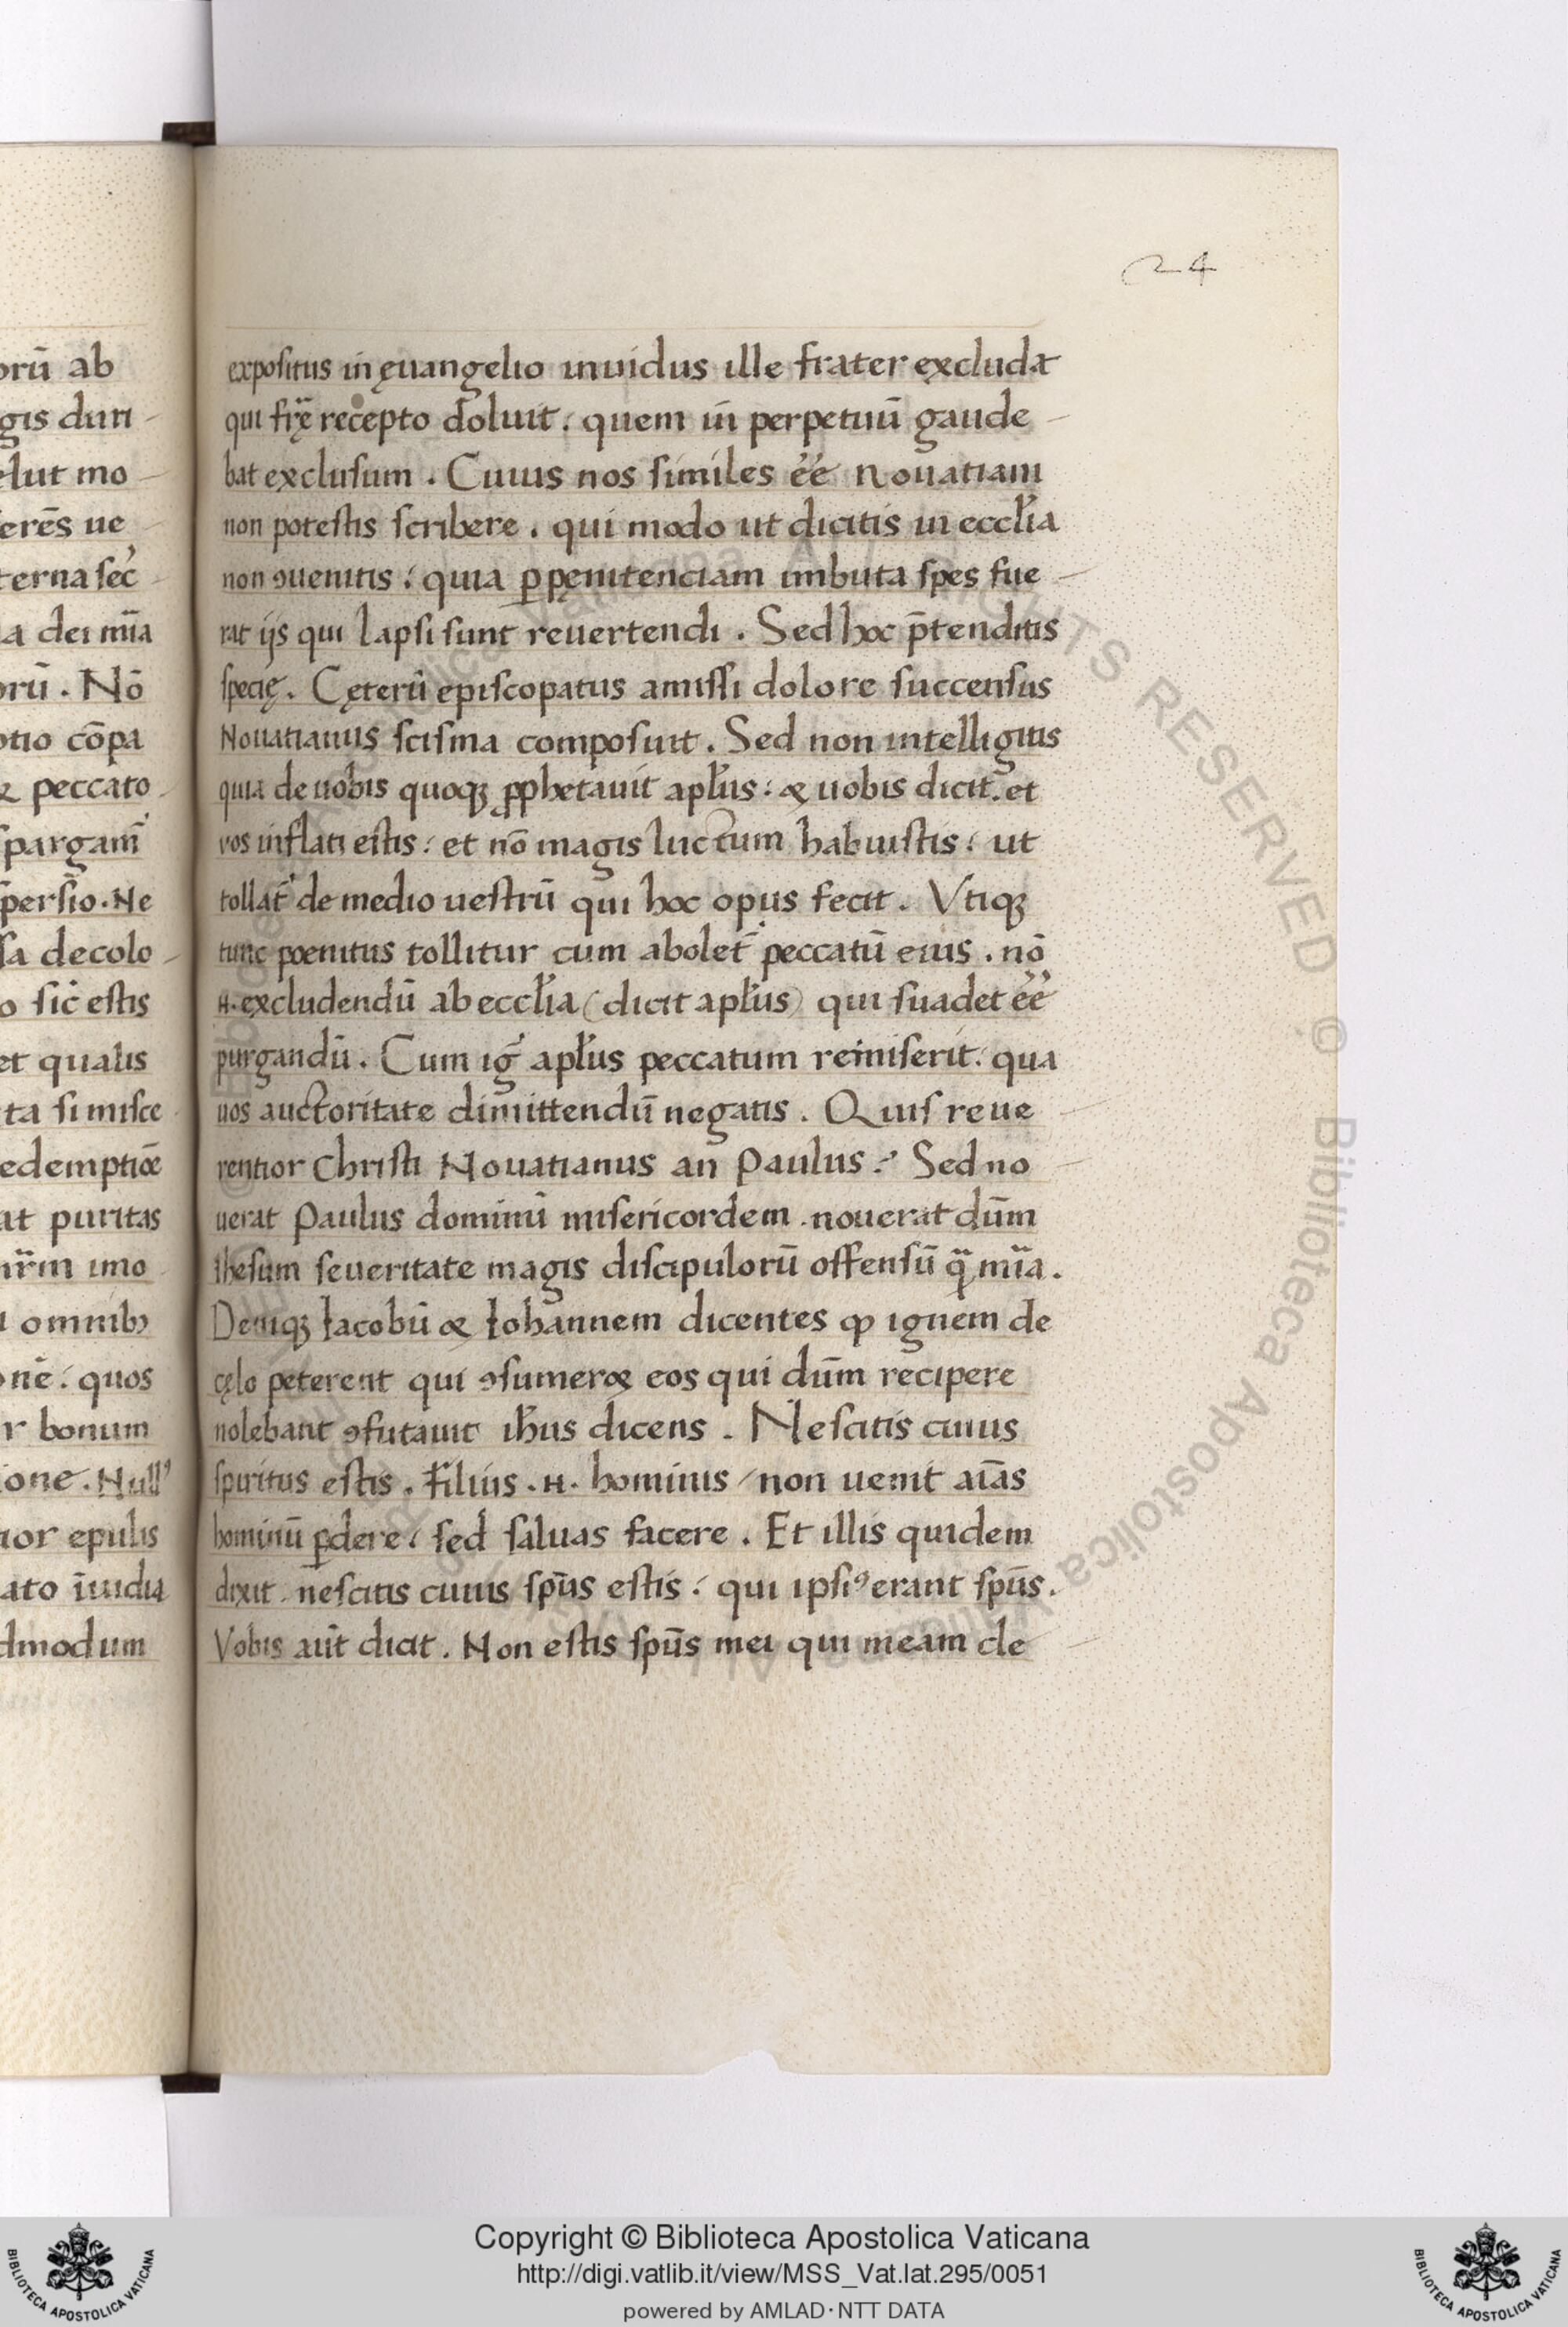 24
expositus in ęuangelio inuidus ille frater excludat̄
qui fr̄ę recepto doluit: quem in perpetuū gaude-
bat exclusum. Cuius nos similes éé Nouatiani
non potestis scribere. qui modo ut dicitis in eccl̄ia
non ꝯuenitis: quia ꝑ pęnitenciam imbuta spes fue-
rat ijs qui lapsi sunt reuertendi. Sed hoc p̄tenditis
specię. Cęterū episcopatus amissi dolore succensus
Nouatianus scisma composuit. Sed non intelligitis
quia de uobis quoqꝫ ꝓphetauit apl̄us: & uobis dicit. et
vos inflati estis: et nō magis luctum habuistis: ut
tollat̄ de medio uestrū qui hoc opus fecit. Vtiqꝫ
tunc poenitus tollitur cum abolet̄ peccatū eius. nō
.N. excludendū ab eccl̄ia (dicit apl̄us) qui suadet éé
purgandū. Cum iḡ apl̄us peccatum remiserit: qua
uos auctoritate dimittendū negatis. Quis reue-
rentior Christi Nouatianus an Paulus? Sed no-
uerat Paulus dominū misericordem. nouerat dūm
ihesum seueritate magis discipulorū offensū q̄ mīa.
Deniqꝫ Iacobū & Iohannem dicentes ꝙ ignem de
cęlo peterent qui ꝯsumer& eos qui dūm recipere
nolebant ꝯfutauit ih̄us dicens. Nescitis cuius
spiritus estis. Filius .N. hominis / non uenit aīas
hominū ꝑdere: sed saluas facere. Et illis quidem
dixit. nescitis cuius sp̄us estis: qui ipsiꝰ erant sp̄us.
Vobis aūt dicit. Non estis sp̄us mei qui meam cle-
Copyright © Biblioteca Apostolica Vaticana
http://digi.vatlib.it/view/MSS_Vat.lat.295/0051
powered by AMLAD·NTT DATA